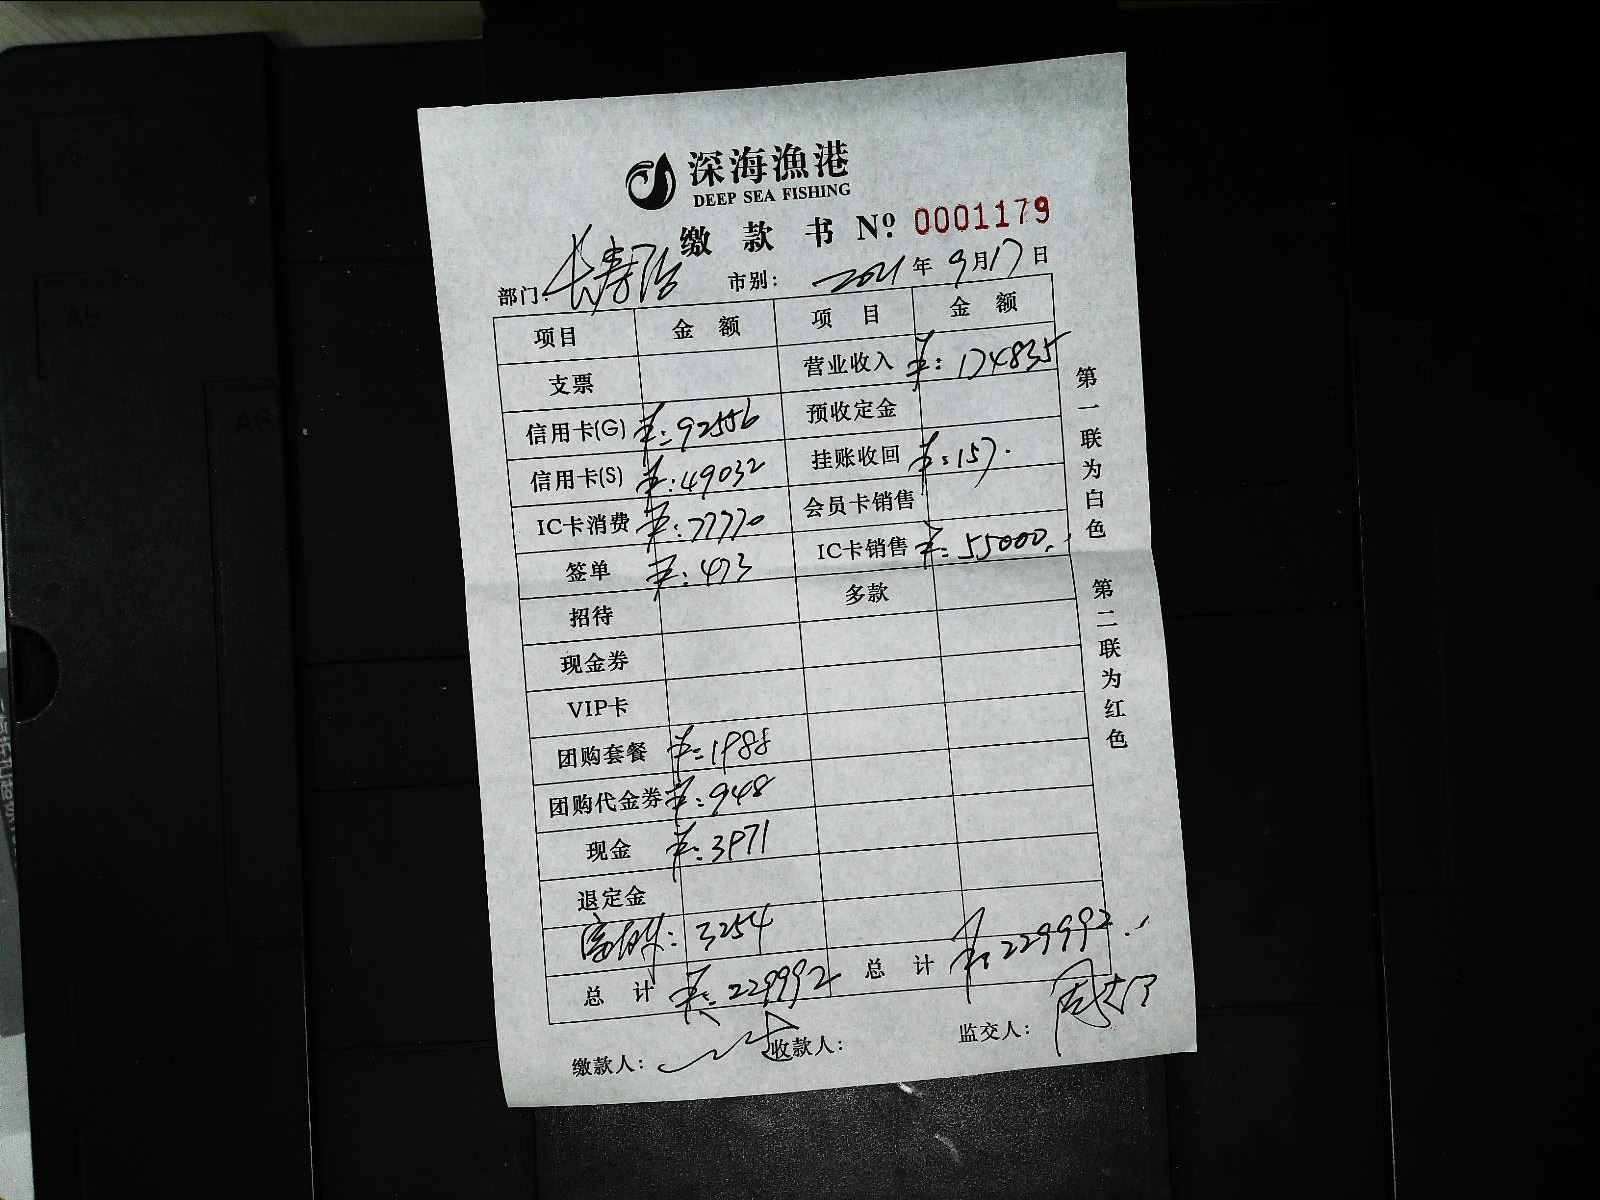 深海渔港
DEEP SEA FISHING
缴款书 Nº 0001179
部门: 长寿路 市别: 2021年9月17日
项目 金额 项目 金额
支票 营业收入 ¥:174835
信用卡(G) ¥:92556 预收定金
信用卡(S) ¥:49032 挂账收回 ¥:157.
IC卡消费 ¥:77770 会员卡销售
签单 ¥:473 IC卡销售 ¥:55000.
招待 多款
现金券
VIP卡
团购套餐 ¥:1988
团购代金券 ¥:948
现金 ¥:3971
退定金
: 3254
总计 ¥:229992 总计 ¥:229992.
缴款人: 收款人: 监交人:
第一联为白色 第二联为红色
A5
A6